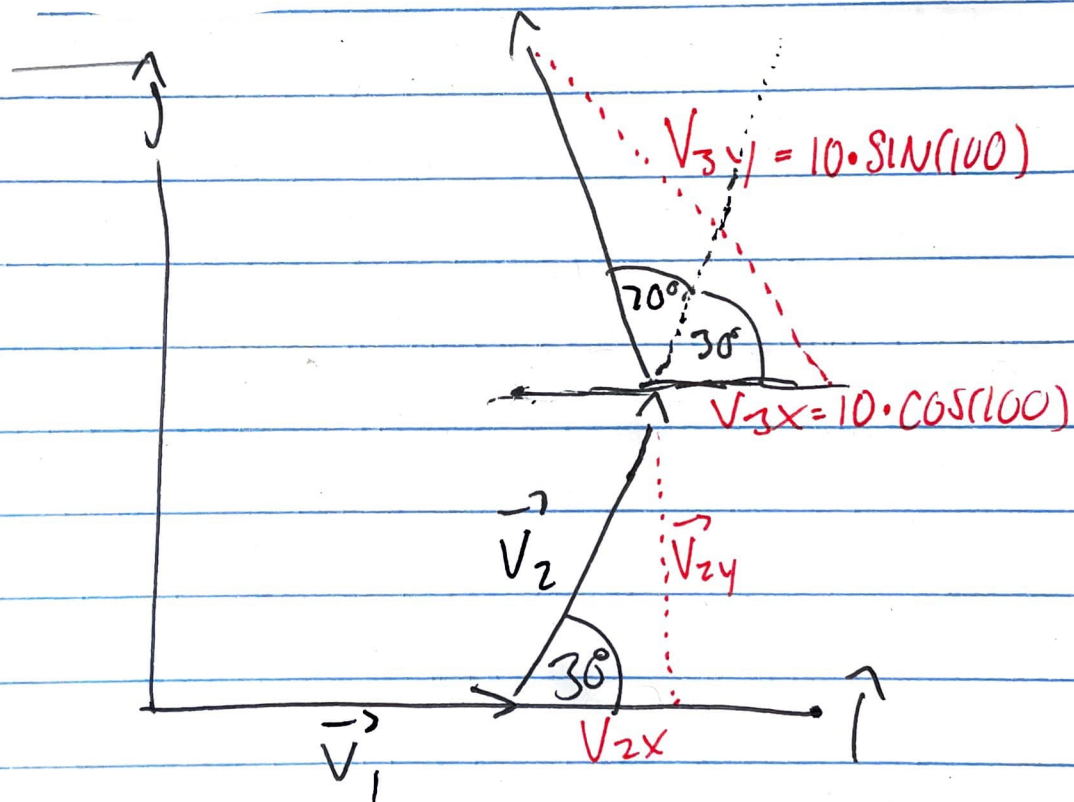 ĵ
V₃y = 10·SIN(100)
70°
30°
V₃x = 10·COS(100)
V⃗₂
V⃗₂y
30°
V⃗₁
V₂x
î